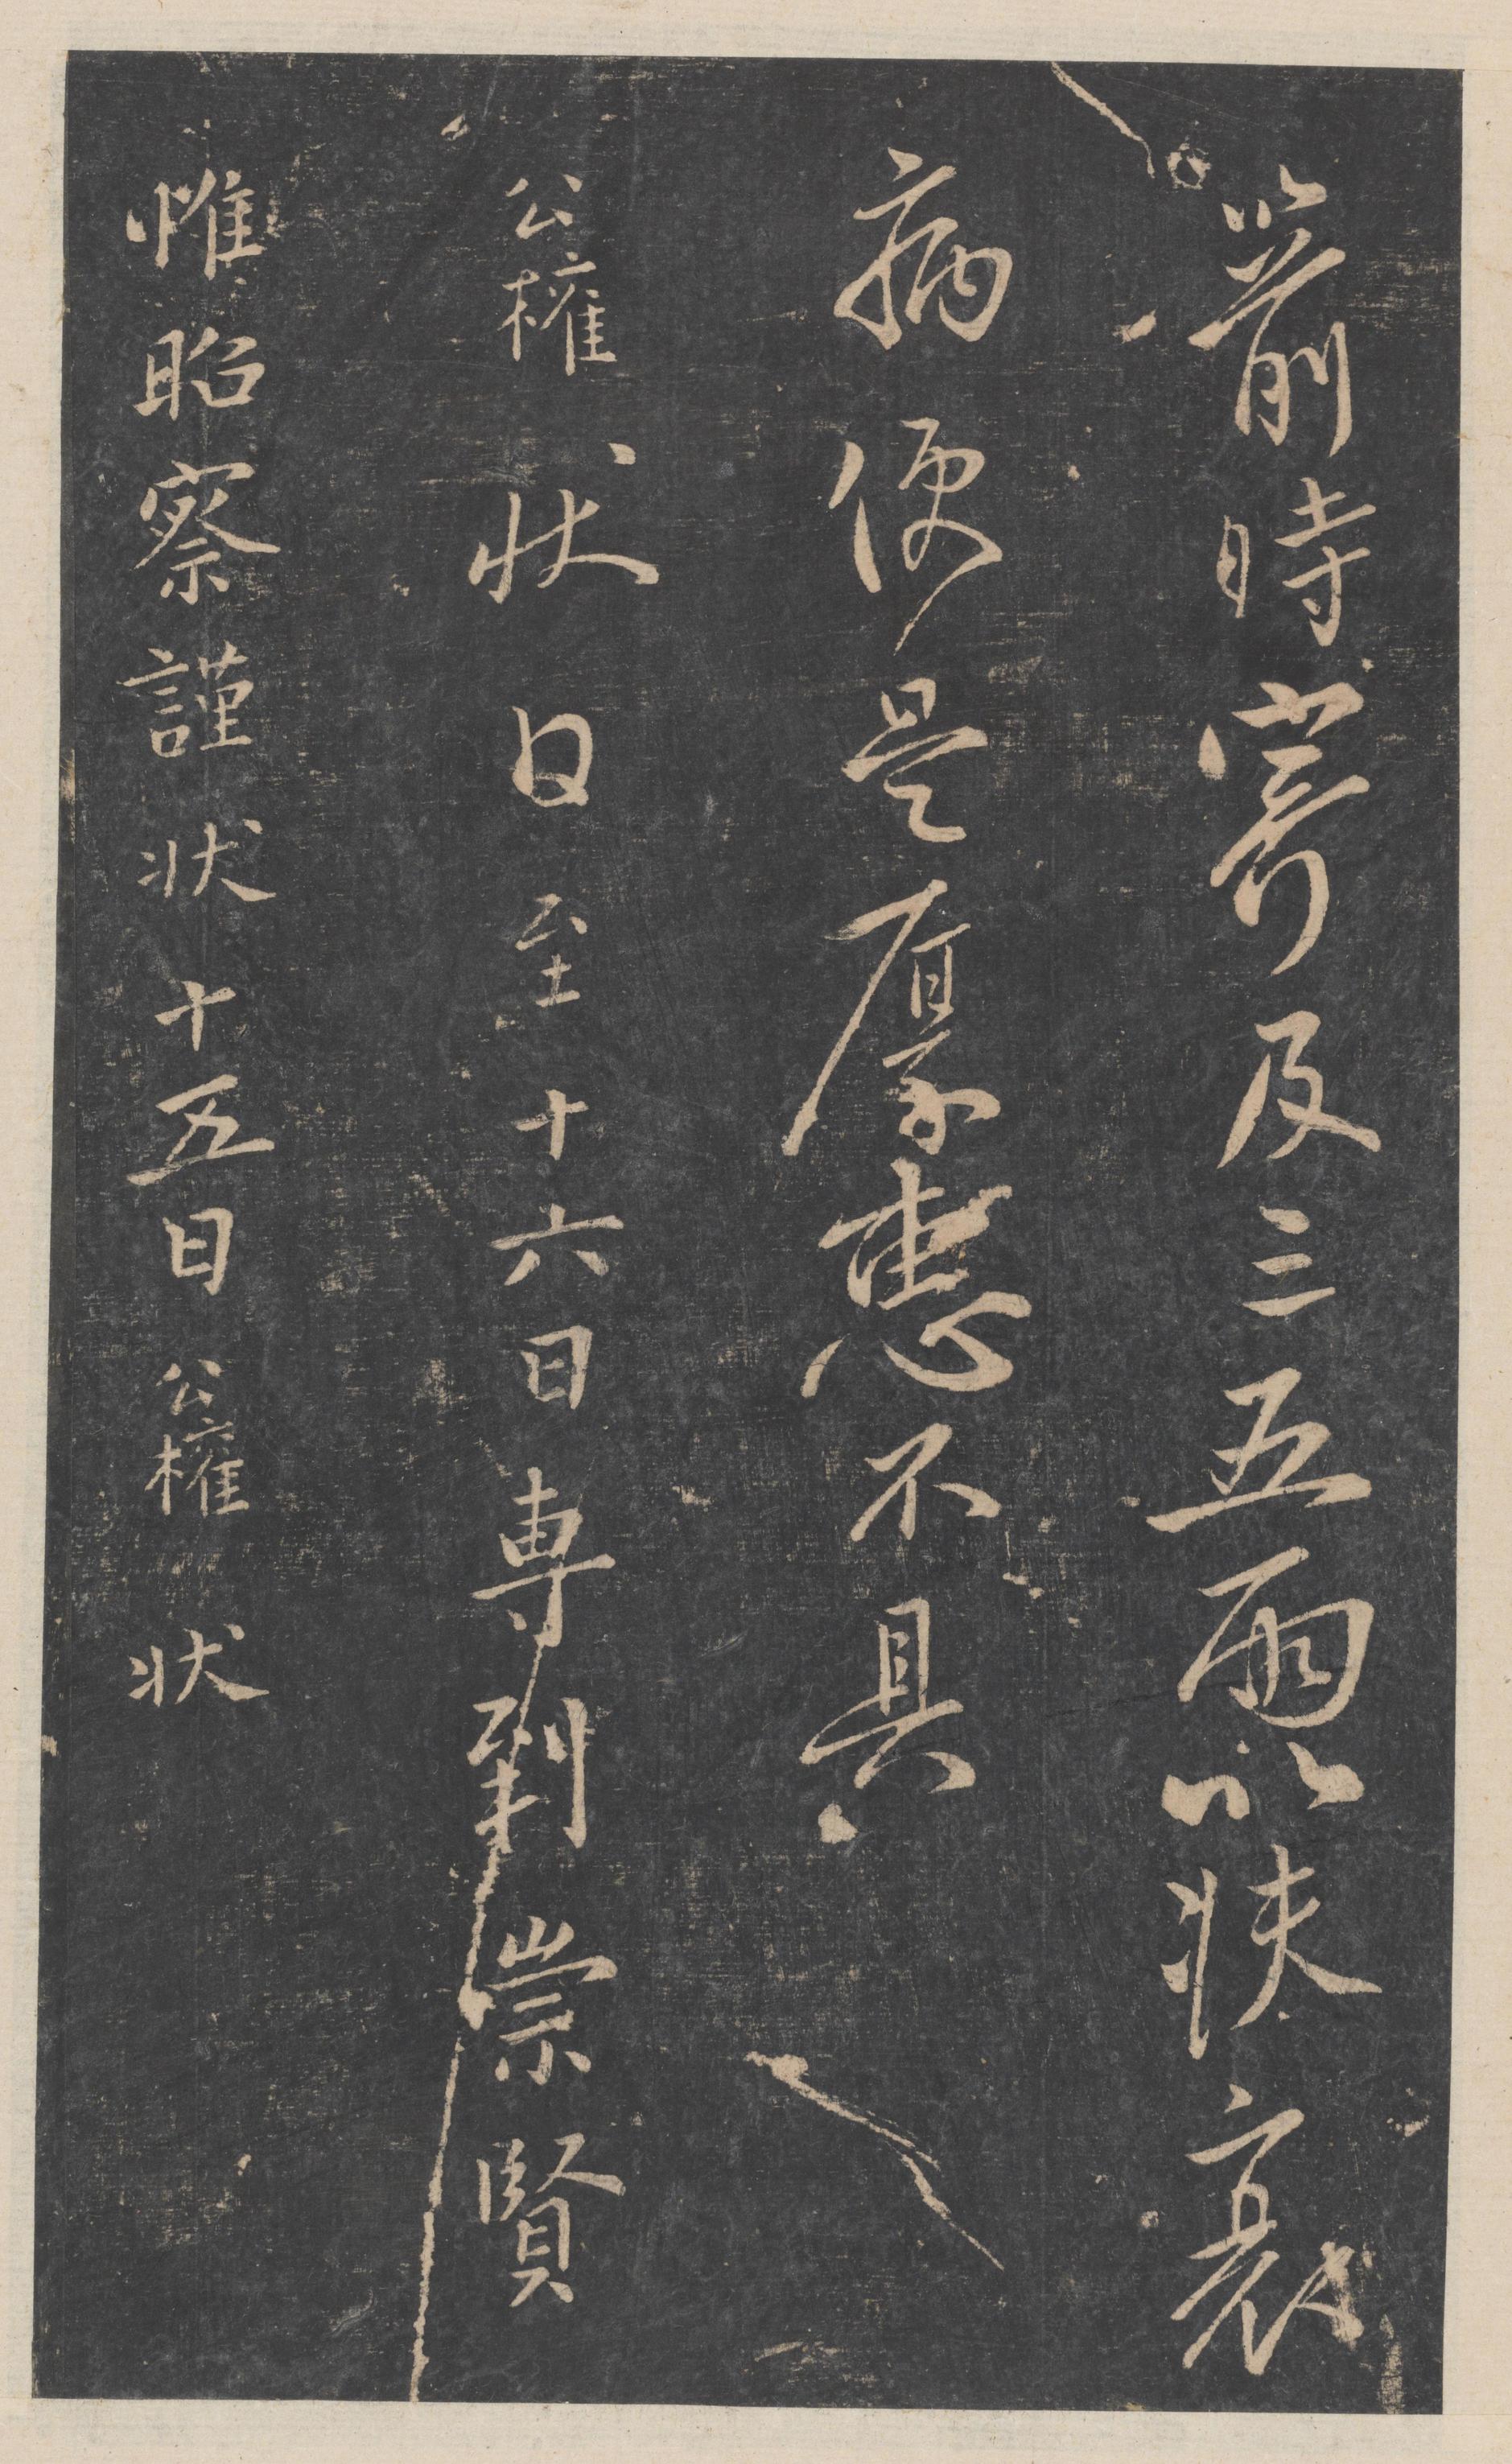 前時寄及三五兩以扶衰
病便是厚惠不具
公權 状 日至十六日專到崇賢
惟昭察謹状十五日公權 状